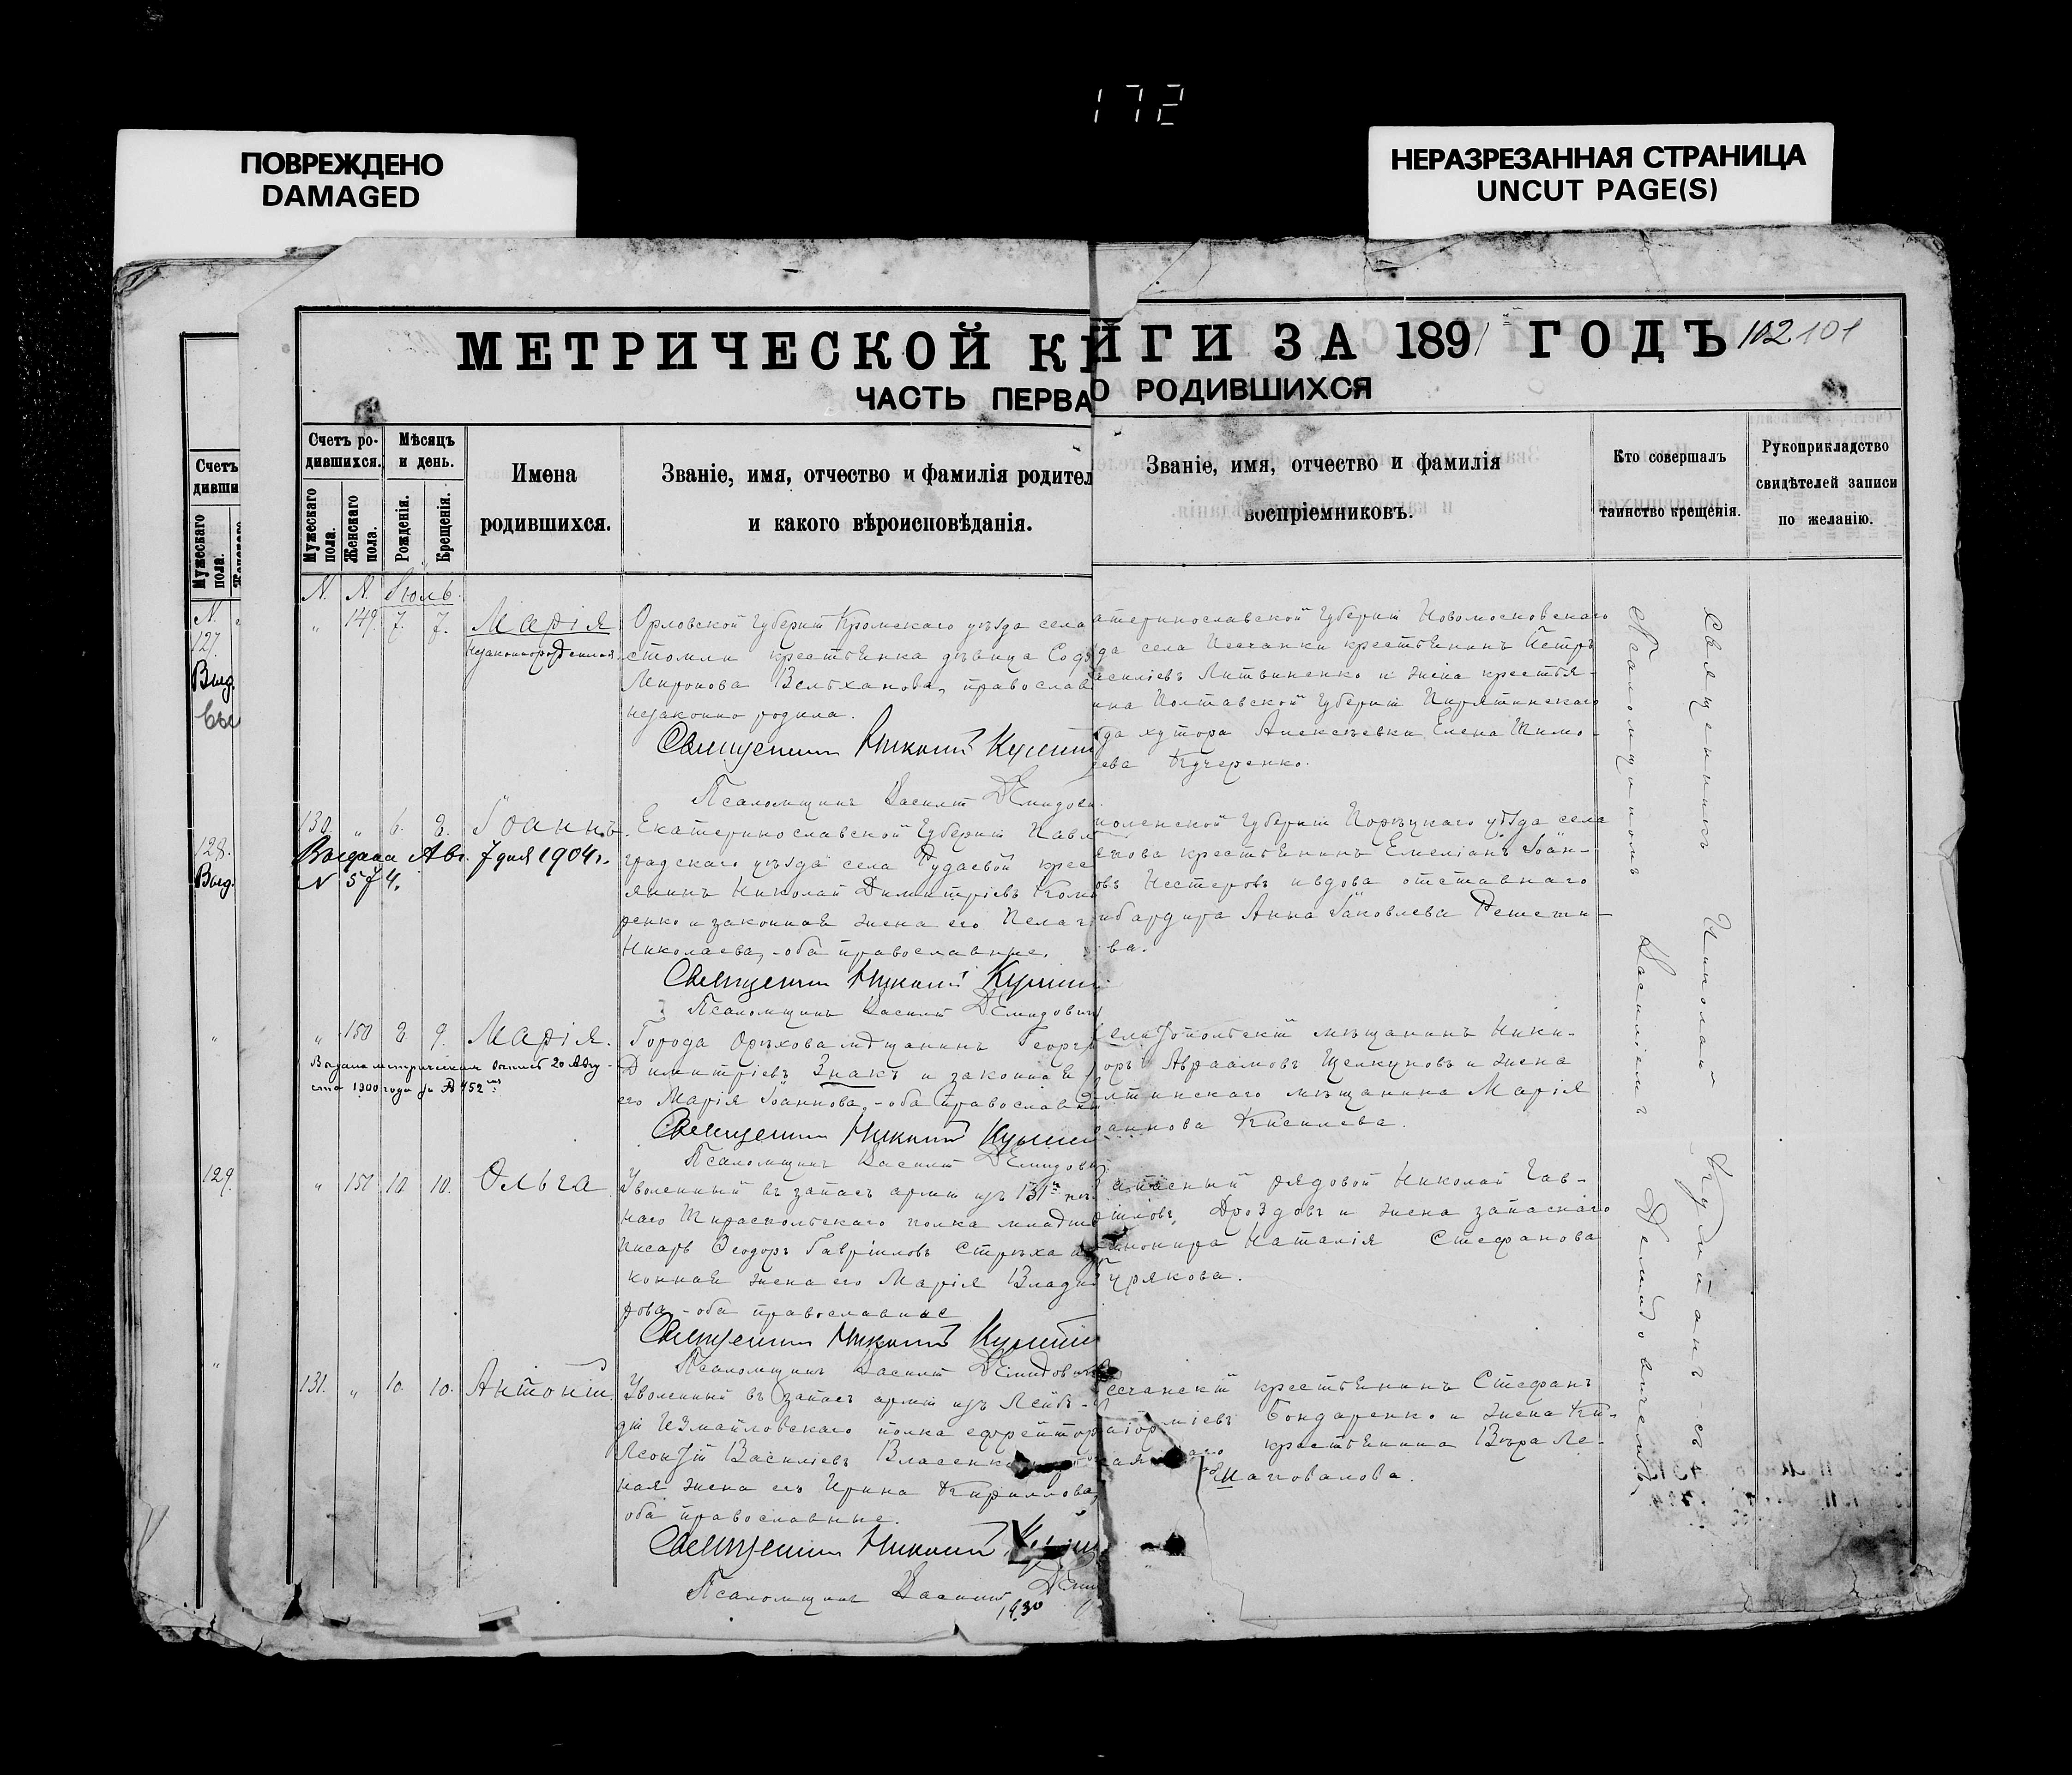 172
ПОВРЕЖДЕНО
DAMAGED
НЕРАЗРЕЗАННАЯ СТРАНИЦА
UNCUT PAGE(S)
МЕТРИЧЕСКОЙ КНИГИ ЗА 1891 ГОДЪ 102 101
ЧАСТЬ ПЕРВА О РОДИВШИХСЯ
Счетъ
дивши
Мужескаго пола.
N.
127.
Выд.
128.
Выд.
"
129.
"
Счетъ ро-
дившихся.
Мужескаго пола.
Женскаго пола.
Мѣсяцъ
и день.
Рожденія.
Крещенія.
Имена
родившихся.
Званіе, имя, отчество и фамилія родител
и какого вѣроисповѣданія.
Званіе, имя, отчество и фамилія
воспріемниковъ.
Кто совершалъ
таинство крещенія.
Рукоприкладство
свидѣтелей записи
по желанію.
N. N. Іюль.
" 149. 7. 7. Марія
незаконнорожденная
Орловской Губерніи Кромскаго уѣзда села
стомли крестьянка дѣвица Соф
Миронова Вельханова, православ
незаконно родила.
Священникъ Николай Кулит
Псаломщикъ Василій Демидови
атеринославской Губерніи Новомосковскаго
да села Песчанки крестьянинъ Петръ
асиліевъ Литвиненко и жена крестья-
нина Полтавской Губерніи Пирятинскаго
да хутора Алексѣевки Елена Тимо-
еева Кучеренко.
130. " 6. 8. Іоаннъ.
Выдана Авг. 7 дня 1904 г.
N 574.
Екатеринославской Губерніи Павл
градскаго уѣзда села Рудаевой крес
янинъ Николай Димитріевъ Кома
ренко и законная жена его Пелаг
Николаева, - оба православные.
Священникъ Николай Кулит
Псаломщикъ Василій Демидович
моленской Губерніи Порѣцкаго уѣзда села
крестьянинъ Емеліанъ Іоан-
овъ Нестеровъ и вдова отставнаго
мбардира Анна Іаковлева Решетн-
ва.
" 150 8. 9. Марія.
Выдана метрическая выпись 20 Авгу-
ста 1900 года за № 452
Города Орѣхова мѣщанинъ Георг
Димитріевъ Знакъ и законная
его Марія Іоаннова, - оба православн
Священникъ Николай Кулит
Псаломщикъ Василій Демидови
елитопольскій мѣщанинъ Ники-
оръ Авраамовъ Щелкуновъ и жена
лтинскаго мѣщанина Марія
оаннова Киселева.
" 151 10. 10. Ольга
Уволенный въ запасъ арміи изъ 131го пѣх
наго Тираспольскаго полка младш
писарь Ѳеодоръ Гавріиловъ Стрѣха
конная жена его Марія Влади
рова, - оба православные
Священникъ Николай Кулит
Псаломщикъ Василій Демидович
апасный рядовой Николай Гав-
ріиловъ Дроздовъ и жена запаснаго
Наталія Стефанова
Гурякова.
131. " 10. 10. Антоній.
Уволенный въ запасъ арміи изъ Лейбъ-
діи Измайловскаго полка ефрейтор
Леонтій Василіевъ Власенко
ная жена его Ирина Кириллова,
оба православные.
Священникъ Николай
Псаломщикъ Василій Деми
1930
есчанскій крестьянинъ Стефанъ
Бондаренко и жена
крестьянина Вѣра Ле-
Шаповалова.
Священникъ Николай Кулитанъ съ
Псаломщикомъ Василіемъ Демидовичемъ